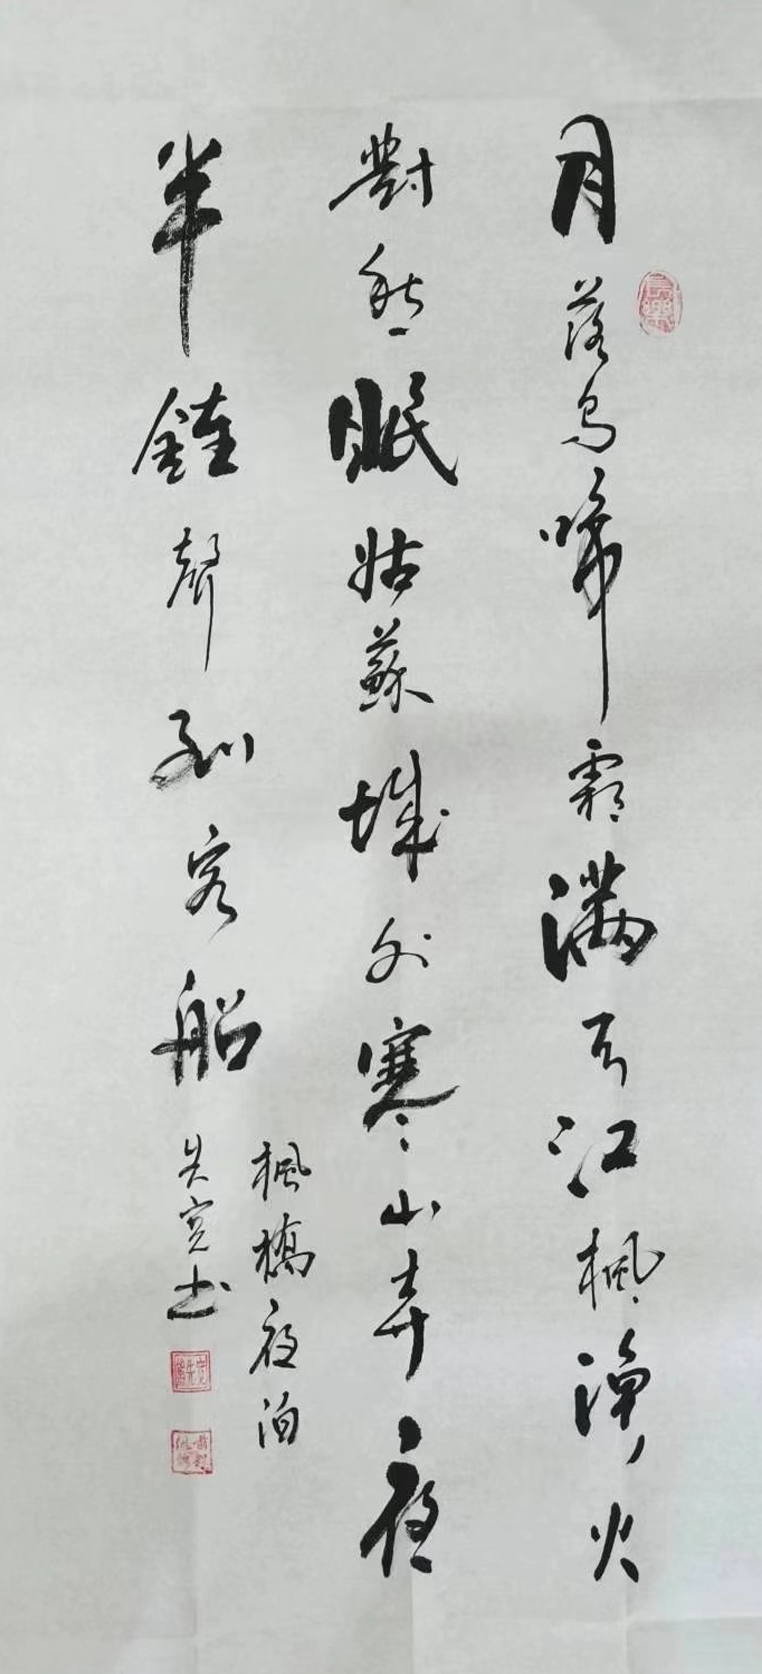 長樂
月落烏啼霜滿天江楓漁火
對愁眠姑蘇城外寒山寺夜
半鍾聲到客船
楓橋夜泊
寬书